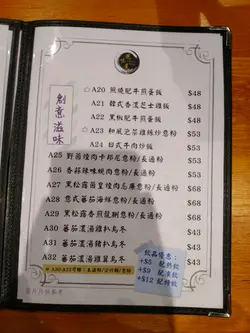 創意滋味
☆ A20 照燒肥牛煎蛋飯 $48
A21 韓式香濃芝士雞飯 $48
A22 黑椒肥牛煎蛋飯 $48
☆ A23 和風芝雞絲炒意粉 $53
A24 日式牛肉炒飯 $53
A25 野菌燴肉卡邦尼意粉/長通粉 $53
A26 香蒜辣味燒肉意粉/長通粉 $53
A27 黑松露菌皇燴肉忌廉意粉/長通粉 $68
A28 意式蕃茄海鮮意粉/長通粉 $68
A29 黑松露香煎龍脷意粉/長通粉 $68
A30 蕃茄濃湯豬扒烏冬 $43
A31 蕃茄濃湯雞扒烏冬 $43
A32 蕃茄濃湯雞翼烏冬 $43
飲品優惠:
+$5 配熱飲
+$9 配凍飲
+$12 配特飲